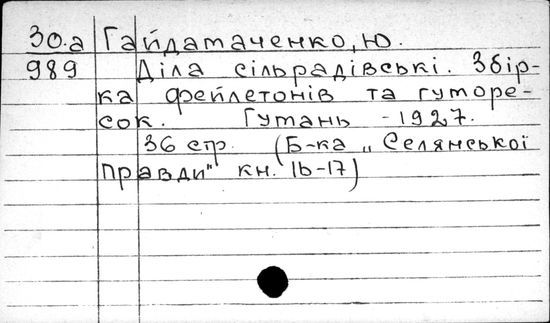 30.а Гайдатаченко, Ю.
989 Діла сільрадівські. Збір-
ка фейлетонів та гуморе-
сок. Гумань - 1927.
36 стр. (Б-ка „Селянської
Правди" кн. 16-17)